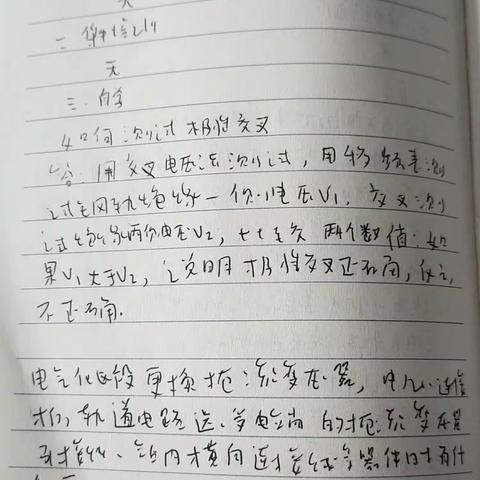 无
三.自学
如何测试极性交叉
答:用交叉电压法测试,用移频表测
试完网轨绝缘一侧电压V₁,交叉测
试绝缘两侧电压V₂,比较两个数值:如
果V₁大于V₂,说明极性交叉正确,反之
不正确.
电气化区段更换扼流变压器,电化、连信
相,轨道电路送、受电端的扼流变压器
引接线、站内横向连接线等器件时有什